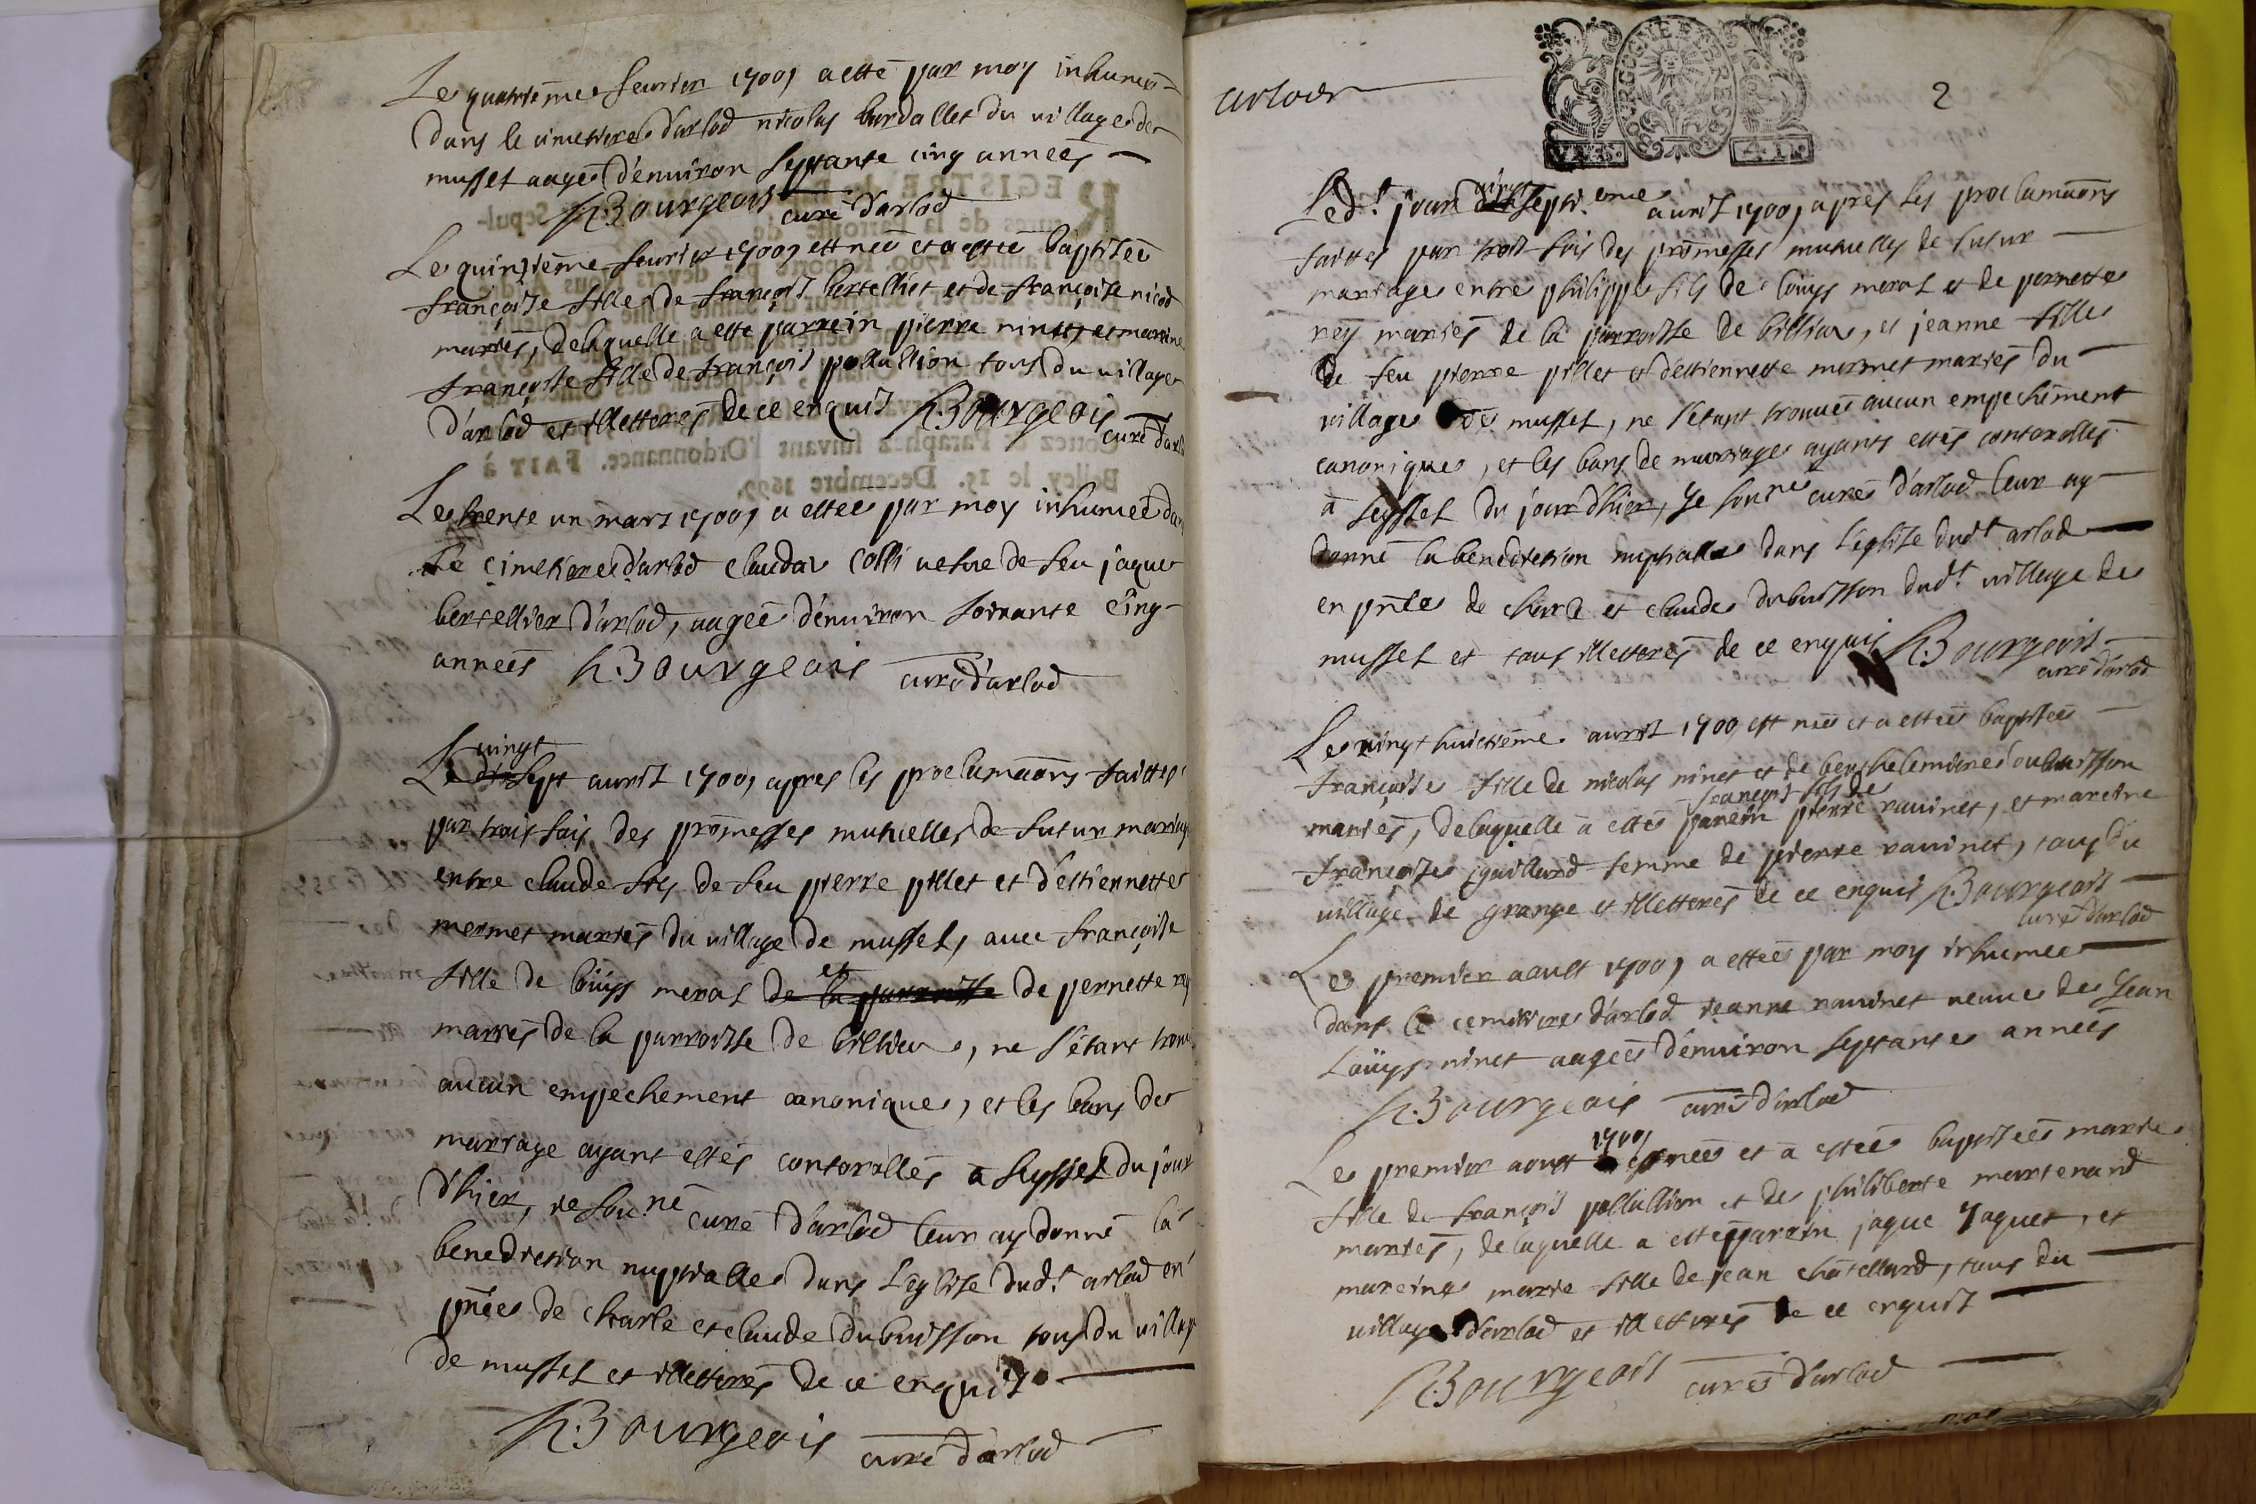 Le quatrième feurier 1700, a etté par moy inhumé
dans le cimetiere d'arlod nicolas burdallet du village de
mussel aagé d'enuiron septante cinq années
Bourgeois curé d'arlod
Le quinzième feurier 1700, est née et a estée baptisée
françoise fille de françois bertellier et de françoise nicod
mariés, de laquelle a esté parrein pierre ninet, et mareine
françoise fille de françois pollallion tous du village
d'arlod et illetterés de ce enquis Bourgeois
curé d'arlod
Le trente un mars 1700, a estée par moy inhumée dans
le cimetiere d'arlod claudaz Colli uefue de feu jaque
bertellier d'arlod, aagée d'enuiron soixante cinq
années Bourgeois curé d'arlod
uingt
Le dix sept auril 1700, apres les proclamaõns faittes
par trois fois des promesses mutuelles de futur mariage
entre claude fils de feu pierre pillet et d'estiennette
mermet mariés du village de mussel, auec françoise
et
fille de loüys meral de la parroisse de pernette rey
mariés de la parroisse de billieu, ne s'étant trouué
aucun empechement canonique, et les bans de
mariage ayant estés controllés a seyssel du jour
d'hier, je sou.né curé d'arlod leur ay donné la
benediction nuptialle dans l'eglise dud.t arlod en
pñce de charle et claude dubuisson tous du village
de mussel et illetterés de ce enquis
Bourgeois curé d'arlod
arlod
BOURGOGNE ET BRESSE
2
uingt
Led.t jour dix septieme auril 1700, apres les proclamaõns
faittes par trois fois des promesses mutuelles de futur
mariage entre philippe fils de loüys meral et de pernette
rey mariés de la parroisse de billieu, et jeanne fille
de feu pierre pillet et d'estiennette mermet mariés du
village de mussel, ne s'étant trouués aucun empechement
canonique, et les bans de mariage ayants estés controllés
à seyssel du jour d'hier, Je sou.né curé d'arlod leur ay
donné la benediction nuptialle dans l'eglise dud.t arlod
en pñce de charle et claude dubuisson dud.t village de
mussel et tous illetterés de ce enquis Bourgeois
curé d'arlod
Le uingt huictième auril 1700, est née et a estée baptisée
françoise fille de nicolas ninet et de berthelemine dubuisson
françois fils de
mariés, de laquelle a esté parein pierre rauinet, et mareine
françoise gaillard femme de pierre rauinet, tous du
village de grange et illetterés de ce enquis Bourgeois
curé d'arlod
Le premier aoust 1700, a estée par moy inhumée
dans le cemitiere d'arlod jeanne rauinet ueuue de Jean
Loüys ninet aagée d'enuiron septante années
Bourgeois curé d'arlod
1700,
Le premier aoust est née et a estée baptisée marie
fille de françois pollallion et de philiberte martenard
mariés, de laquelle a esté parein jaque Jaquet, et
mareine marie fille de jean châtellard, tous du
village d'arlod et illetterés de ce enquis
Bourgeois curé d'arlod